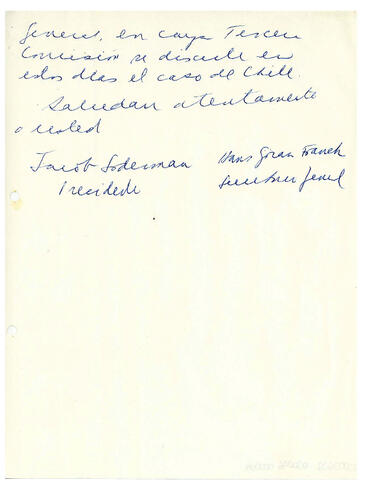 General, en cuya Tercera
Comisión se discute en
estos días el caso de Chile.
Saludan atentamente
a usted
Jacob Soderman Hans Goran Franck
Presidente Secretario General